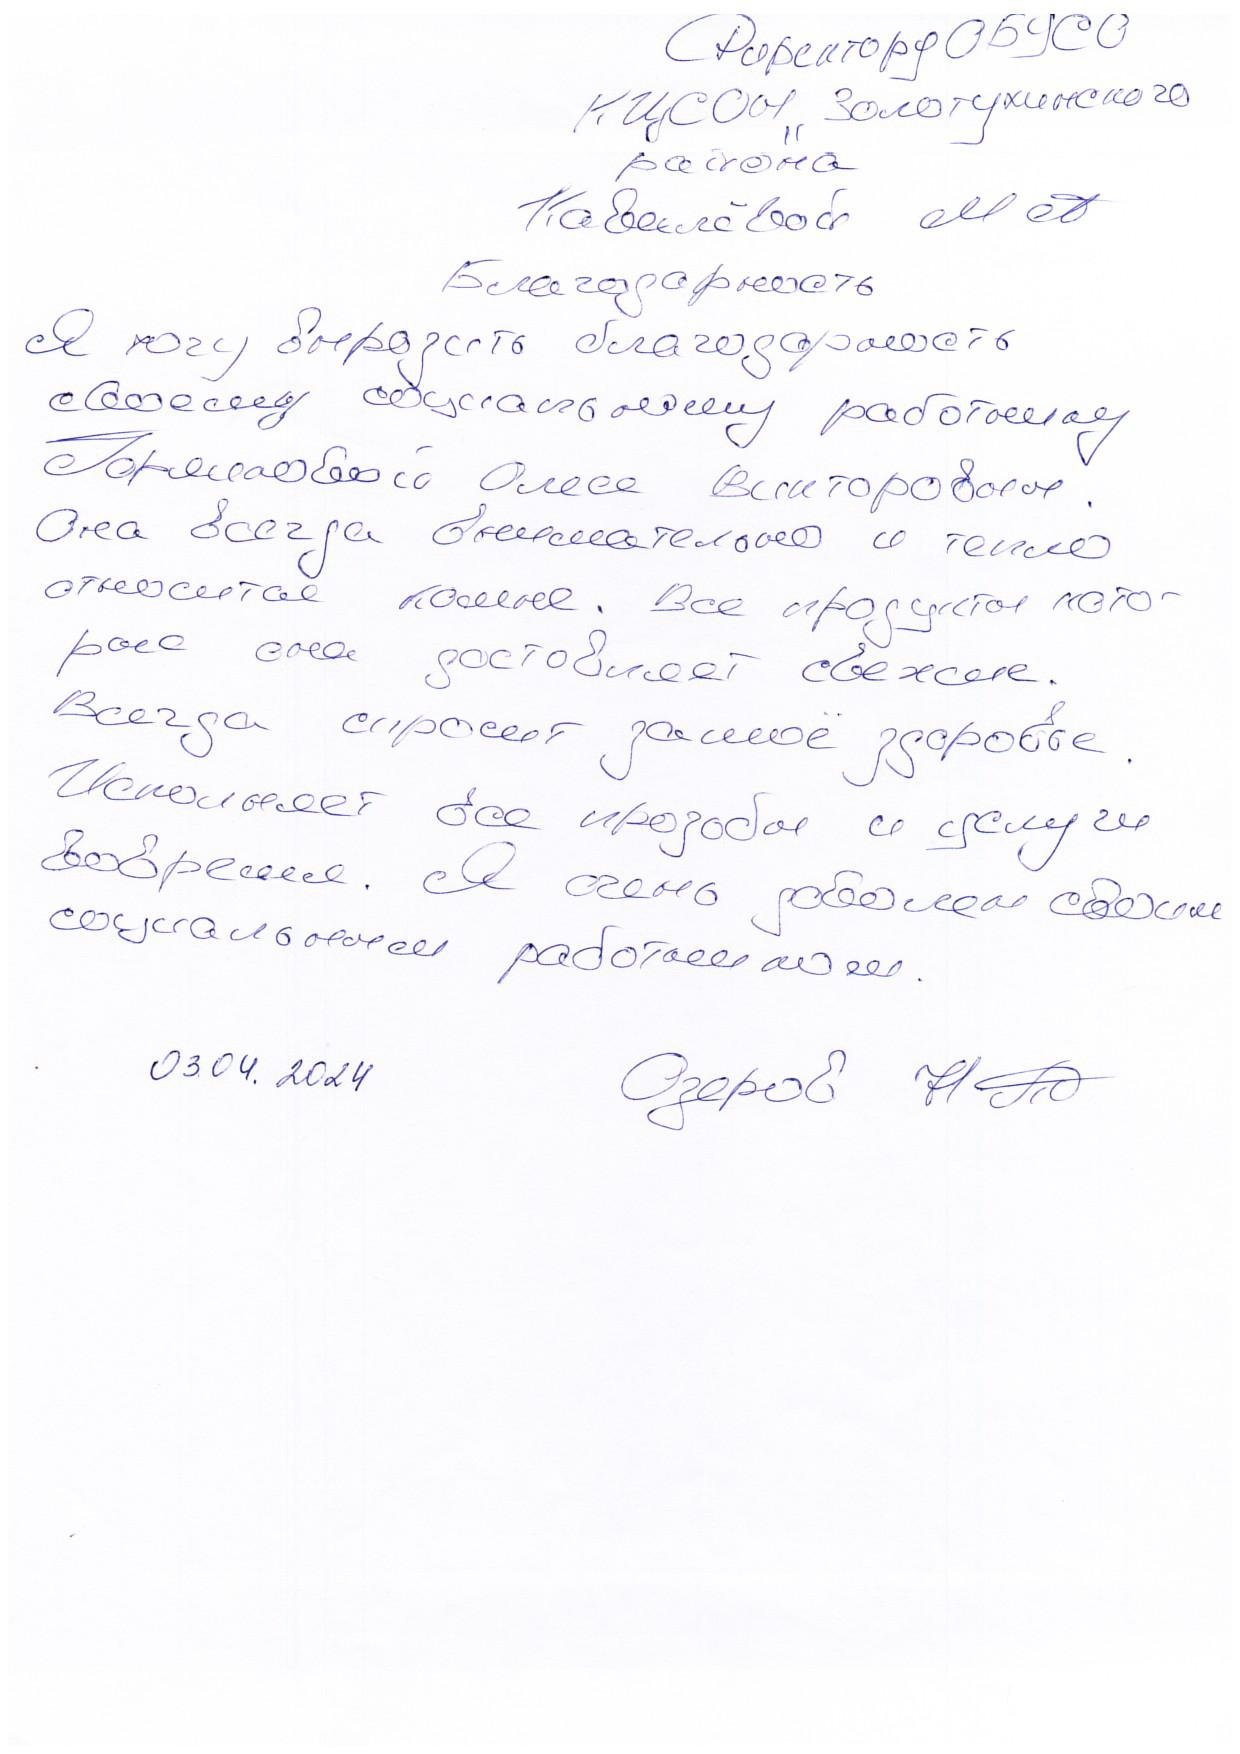 Директору ОБУСО
КЦСОН „Золотухинского
района
Ковалёвой М А
Благодарность
Я хочу выразить благодарность
своему социальному работнику
Олесе Викторовны.
Она всегда внимательно и тепло
относится комне. Все продукты кото-
рые она достовляет свежие.
Всегда спросит замоё здоровье.
Исполняет все прозобы и услуги
вовремя. Я очень доволен своим
социальным работником.
03.04.2024 Озеров Н П